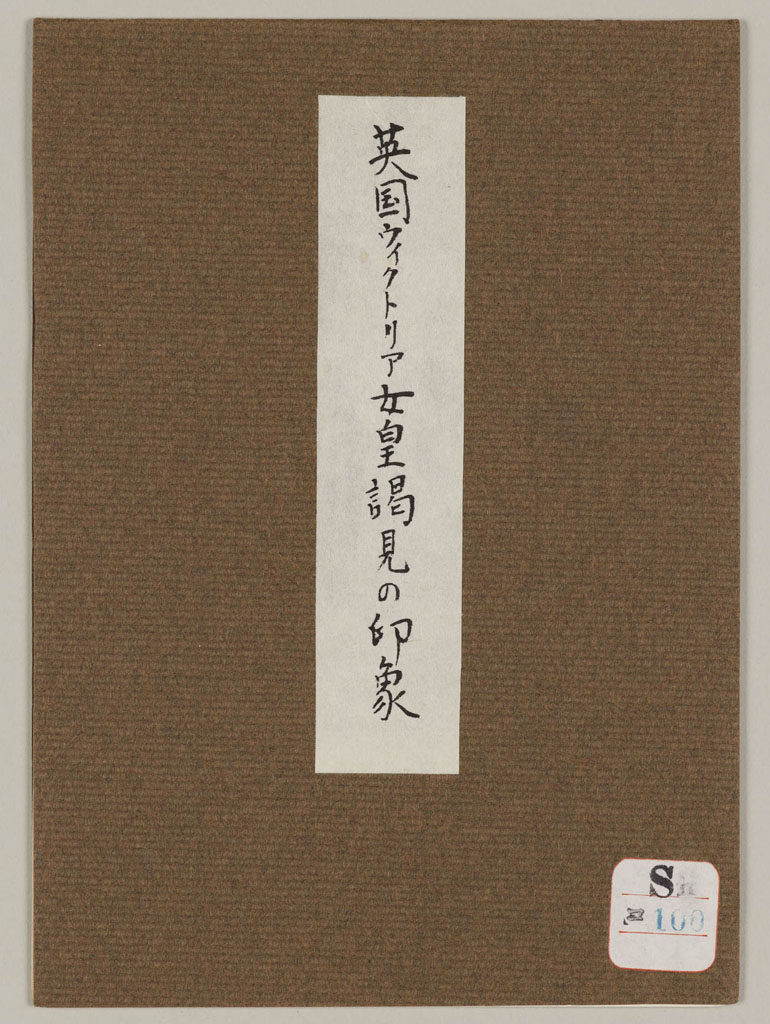 英国ウィクトリア女皇謁見の印象
S
100